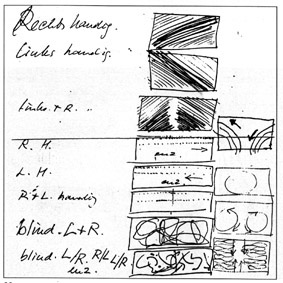 Rechts handig.
Links handig.
Links + R. "
R. H.
enz.
L. H.
enz.
R + L. handig
blind. L + R.
blind. L/R. R/L L/R
enz.